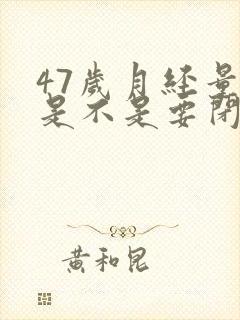 47歲月經量
是不是要閉
黃和昆